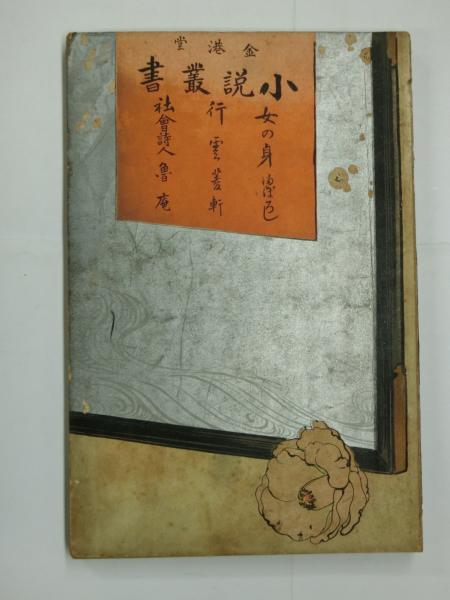 金港堂
小説叢書
女の身
行雲 菱軒
社會詩人 魯庵